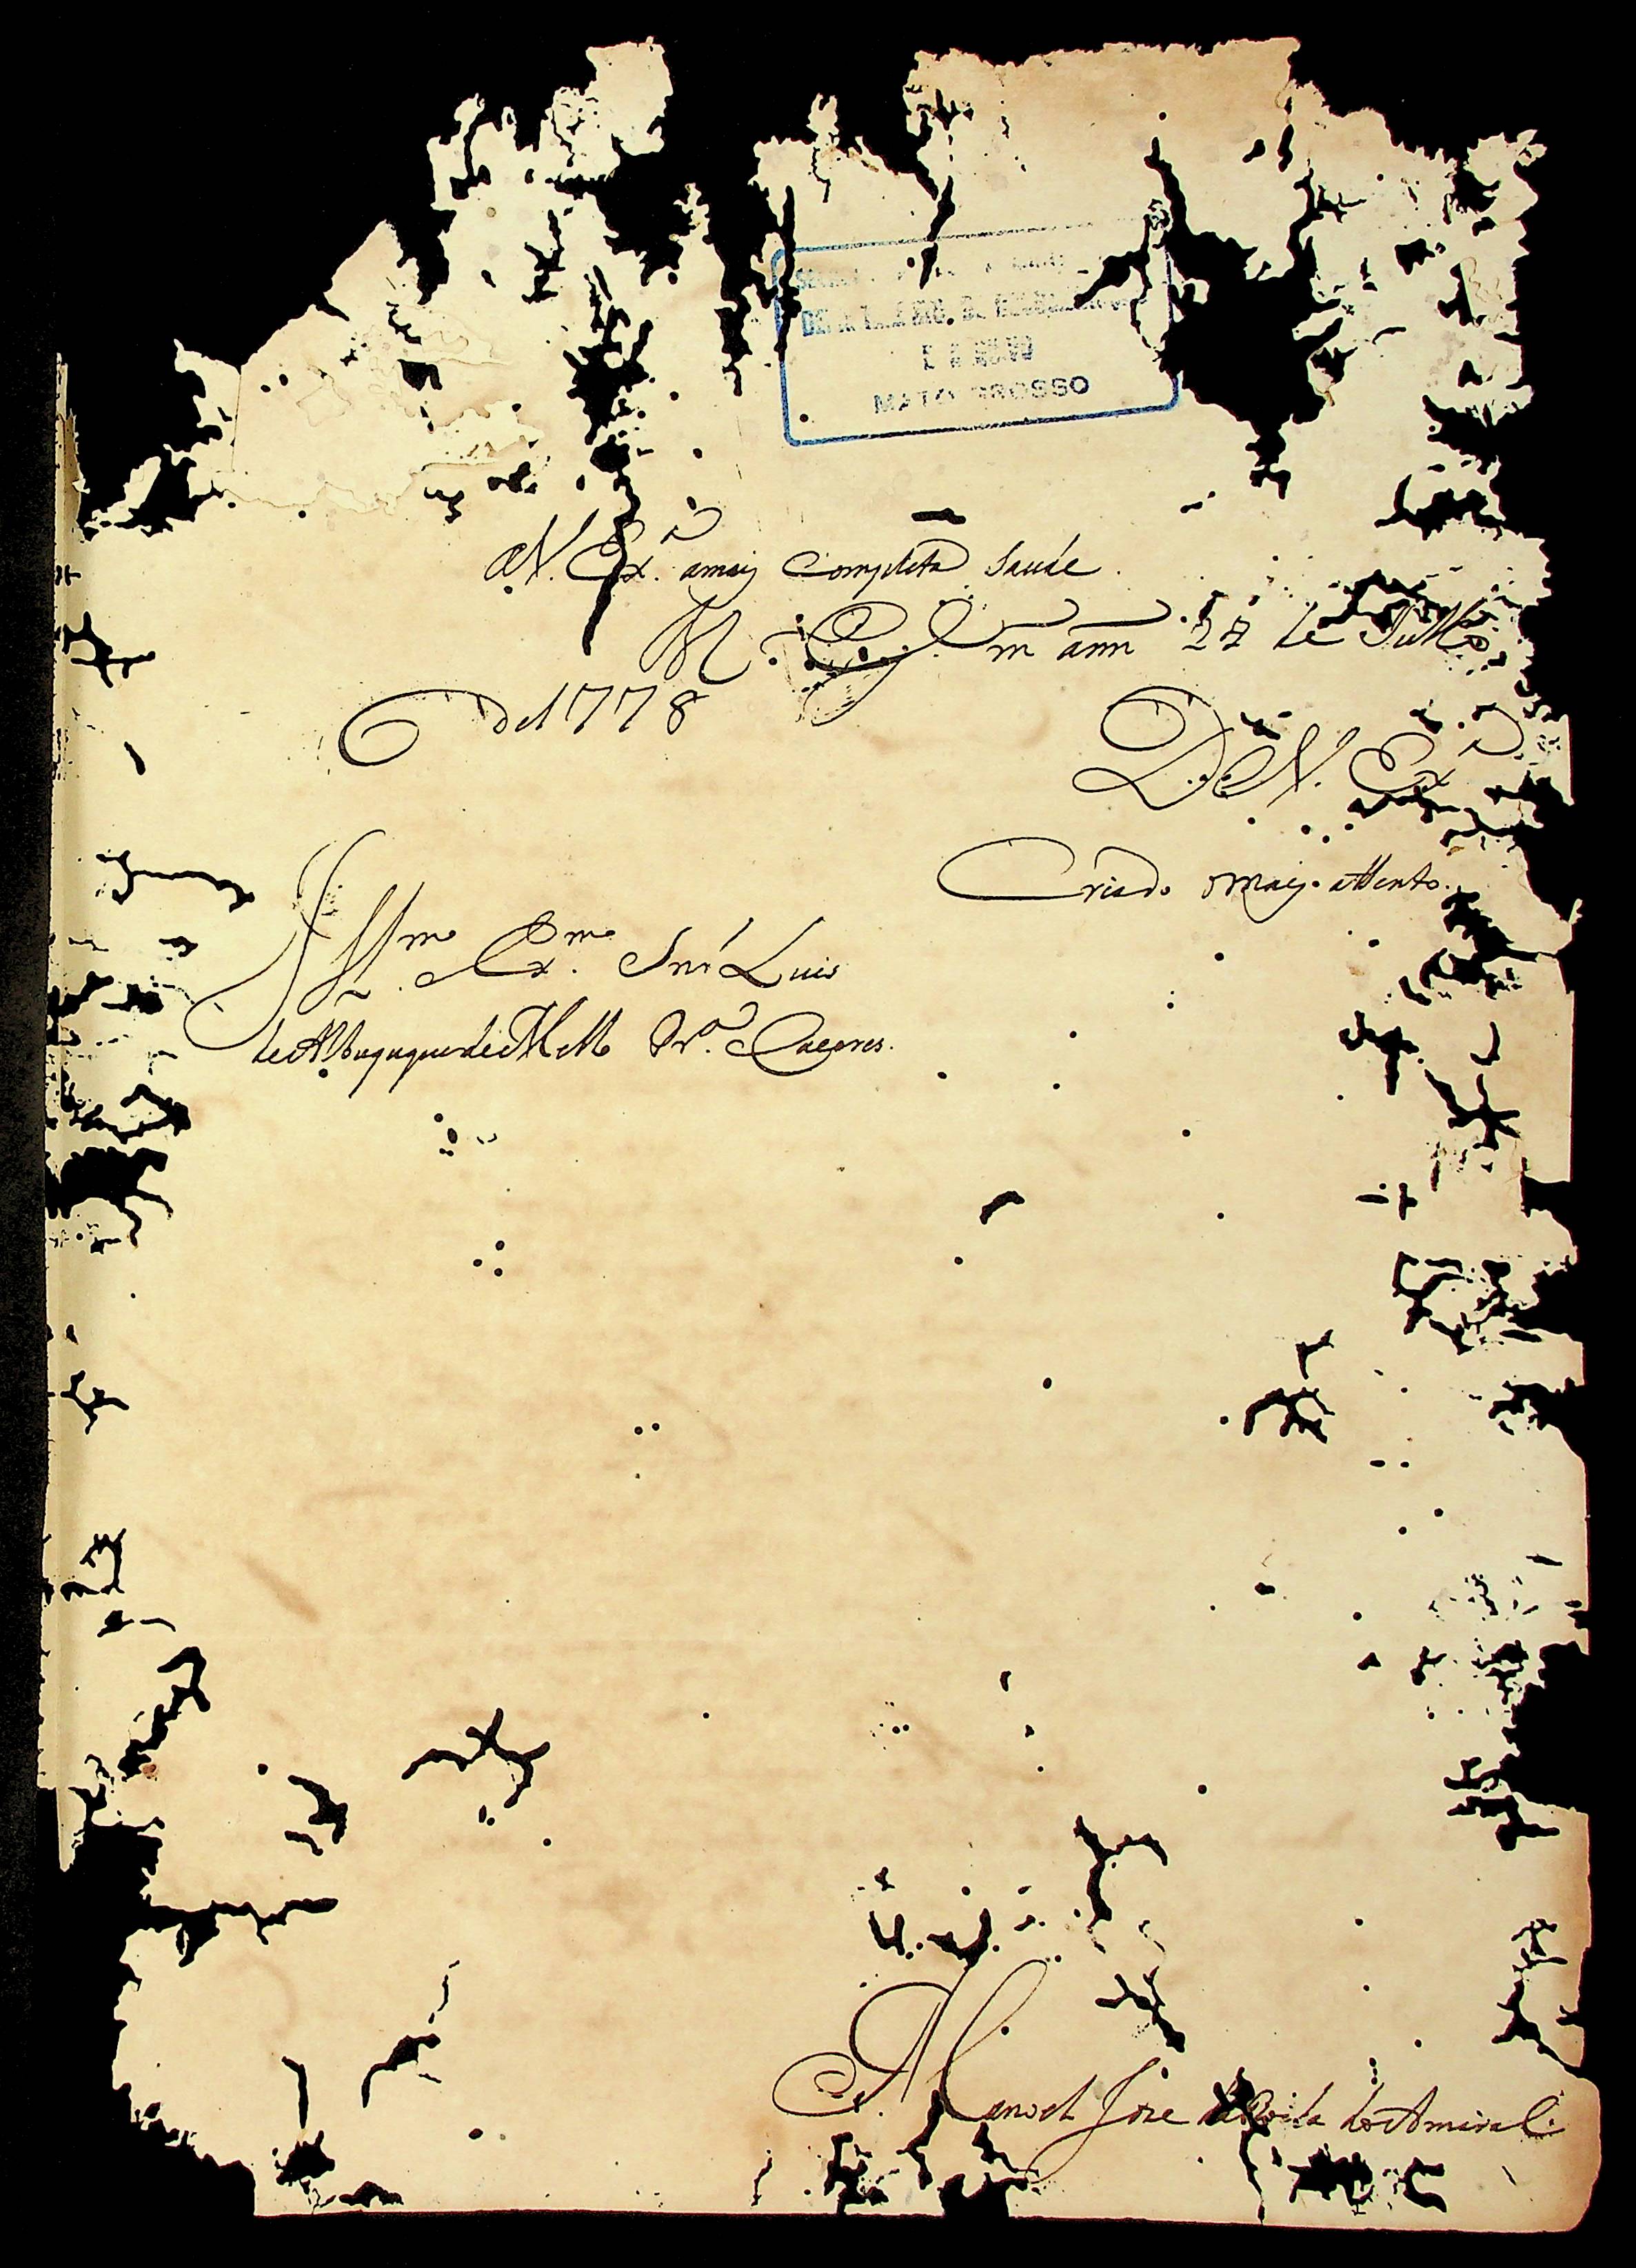 MATO GROSSO
a V. Ex.ª amais completa Saude.
M. Ex.mo 27 de Julho
de 1778
De V. Ex.ª
Criado omais attento.
Ill.mo Ex.mo Snr' Luis
de Albuquerque de Mello Pr.ª Caceres.
Manoel Joze de Amaral